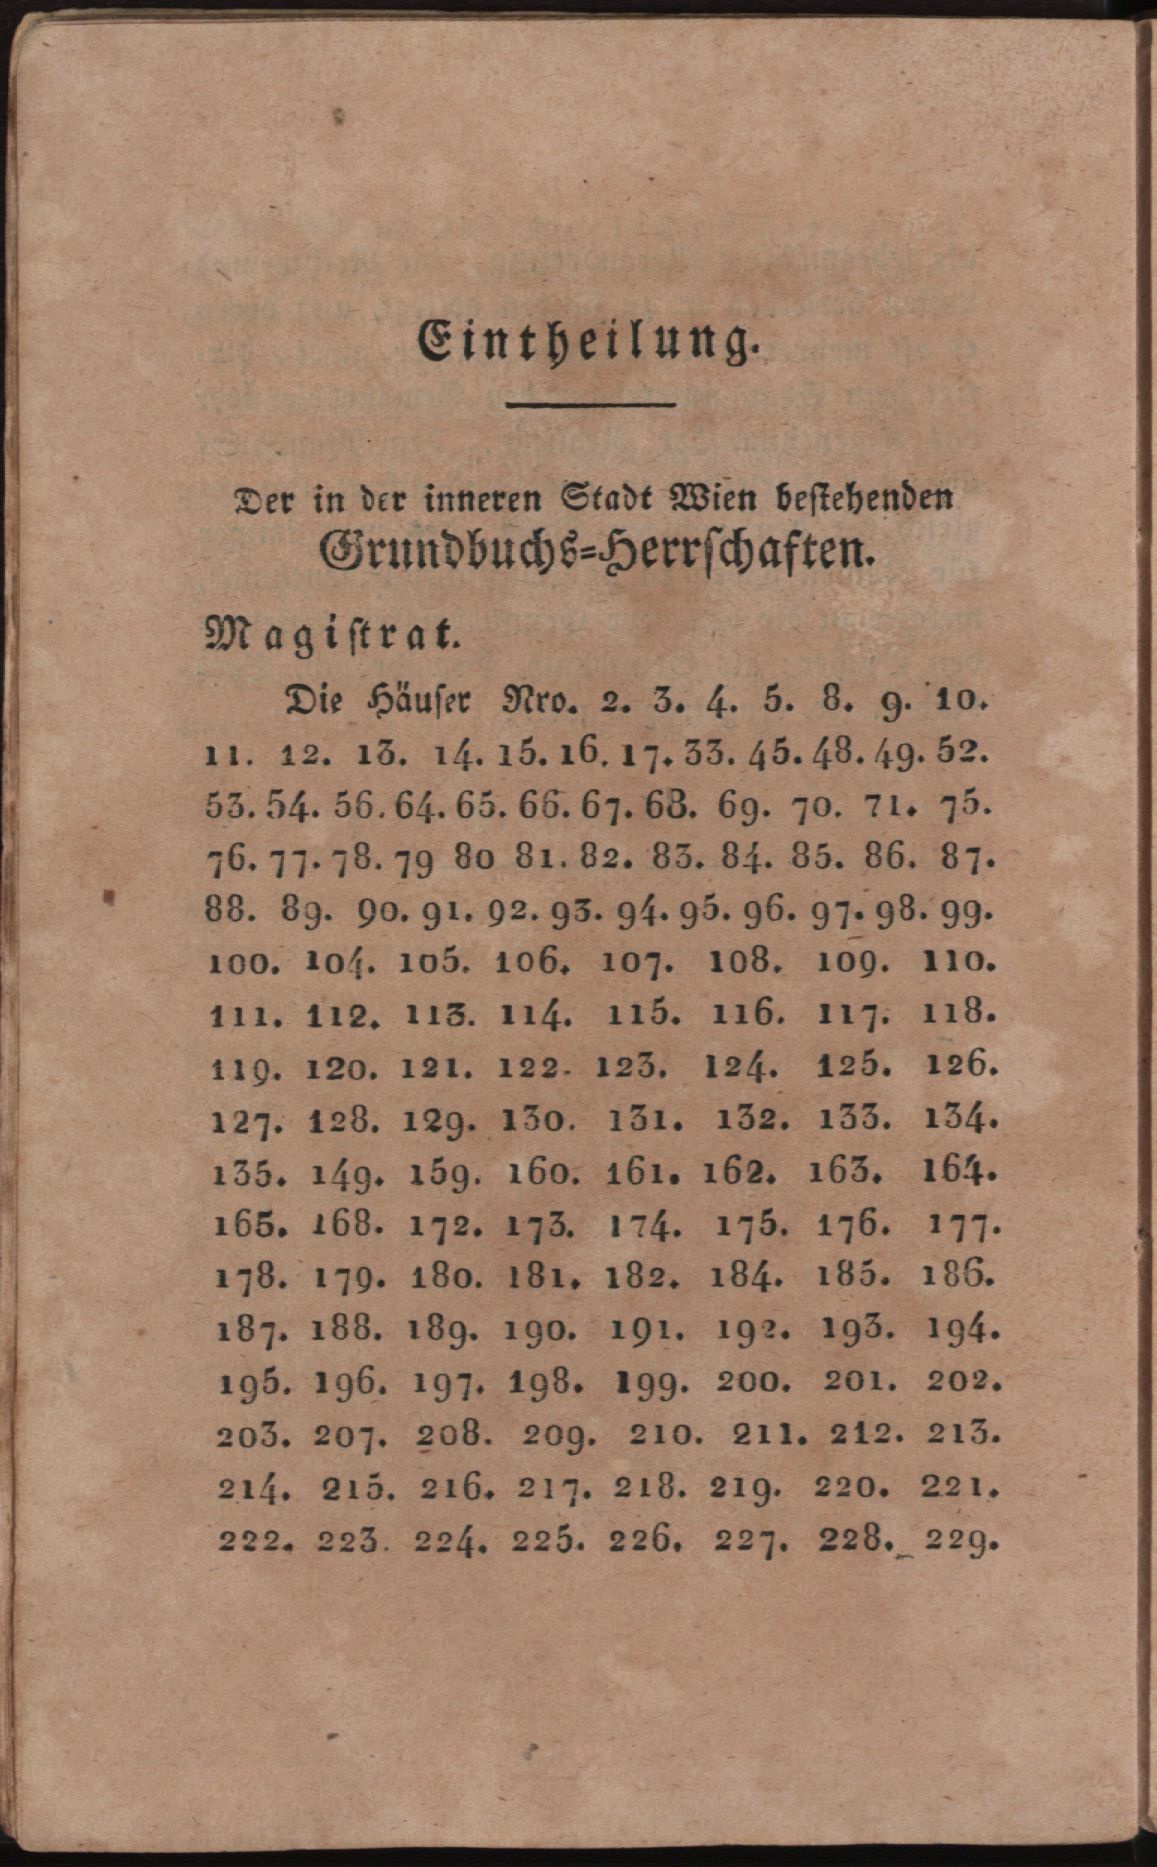 Eintheilung.
Der in der inneren Stadt Wien bestehenden
Grundbuchs=Herrschaften.
Magistrat.
Die Häuser Nro. 2. 3. 4. 5. 8. 9. 10.
11. 12. 13. 14. 15. 16. 17. 33. 45. 48. 49. 52.
53. 54. 56. 64. 65. 66. 67. 68. 69. 70. 71. 75.
76. 77. 78. 79 80 81. 82. 83. 84. 85. 86. 87.
88. 89. 90. 91. 92. 93. 94. 95. 96. 97. 98. 99.
100. 104. 105. 106. 107. 108. 109. 110.
111. 112. 113. 114. 115. 116. 117. 118.
119. 120. 121. 122. 123. 124. 125. 126.
127. 128. 129. 130. 131. 132. 133. 134.
135. 149. 159. 160. 161. 162. 163. 164.
165. 168. 172. 173. 174. 175. 176. 177.
178. 179. 180. 181. 182. 184. 185. 186.
187. 188. 189. 190. 191. 192. 193. 194.
195. 196. 197. 198. 199. 200. 201. 202.
203. 207. 208. 209. 210. 211. 212. 213.
214. 215. 216. 217. 218. 219. 220. 221.
222. 223. 224. 225. 226. 227. 228. 229.